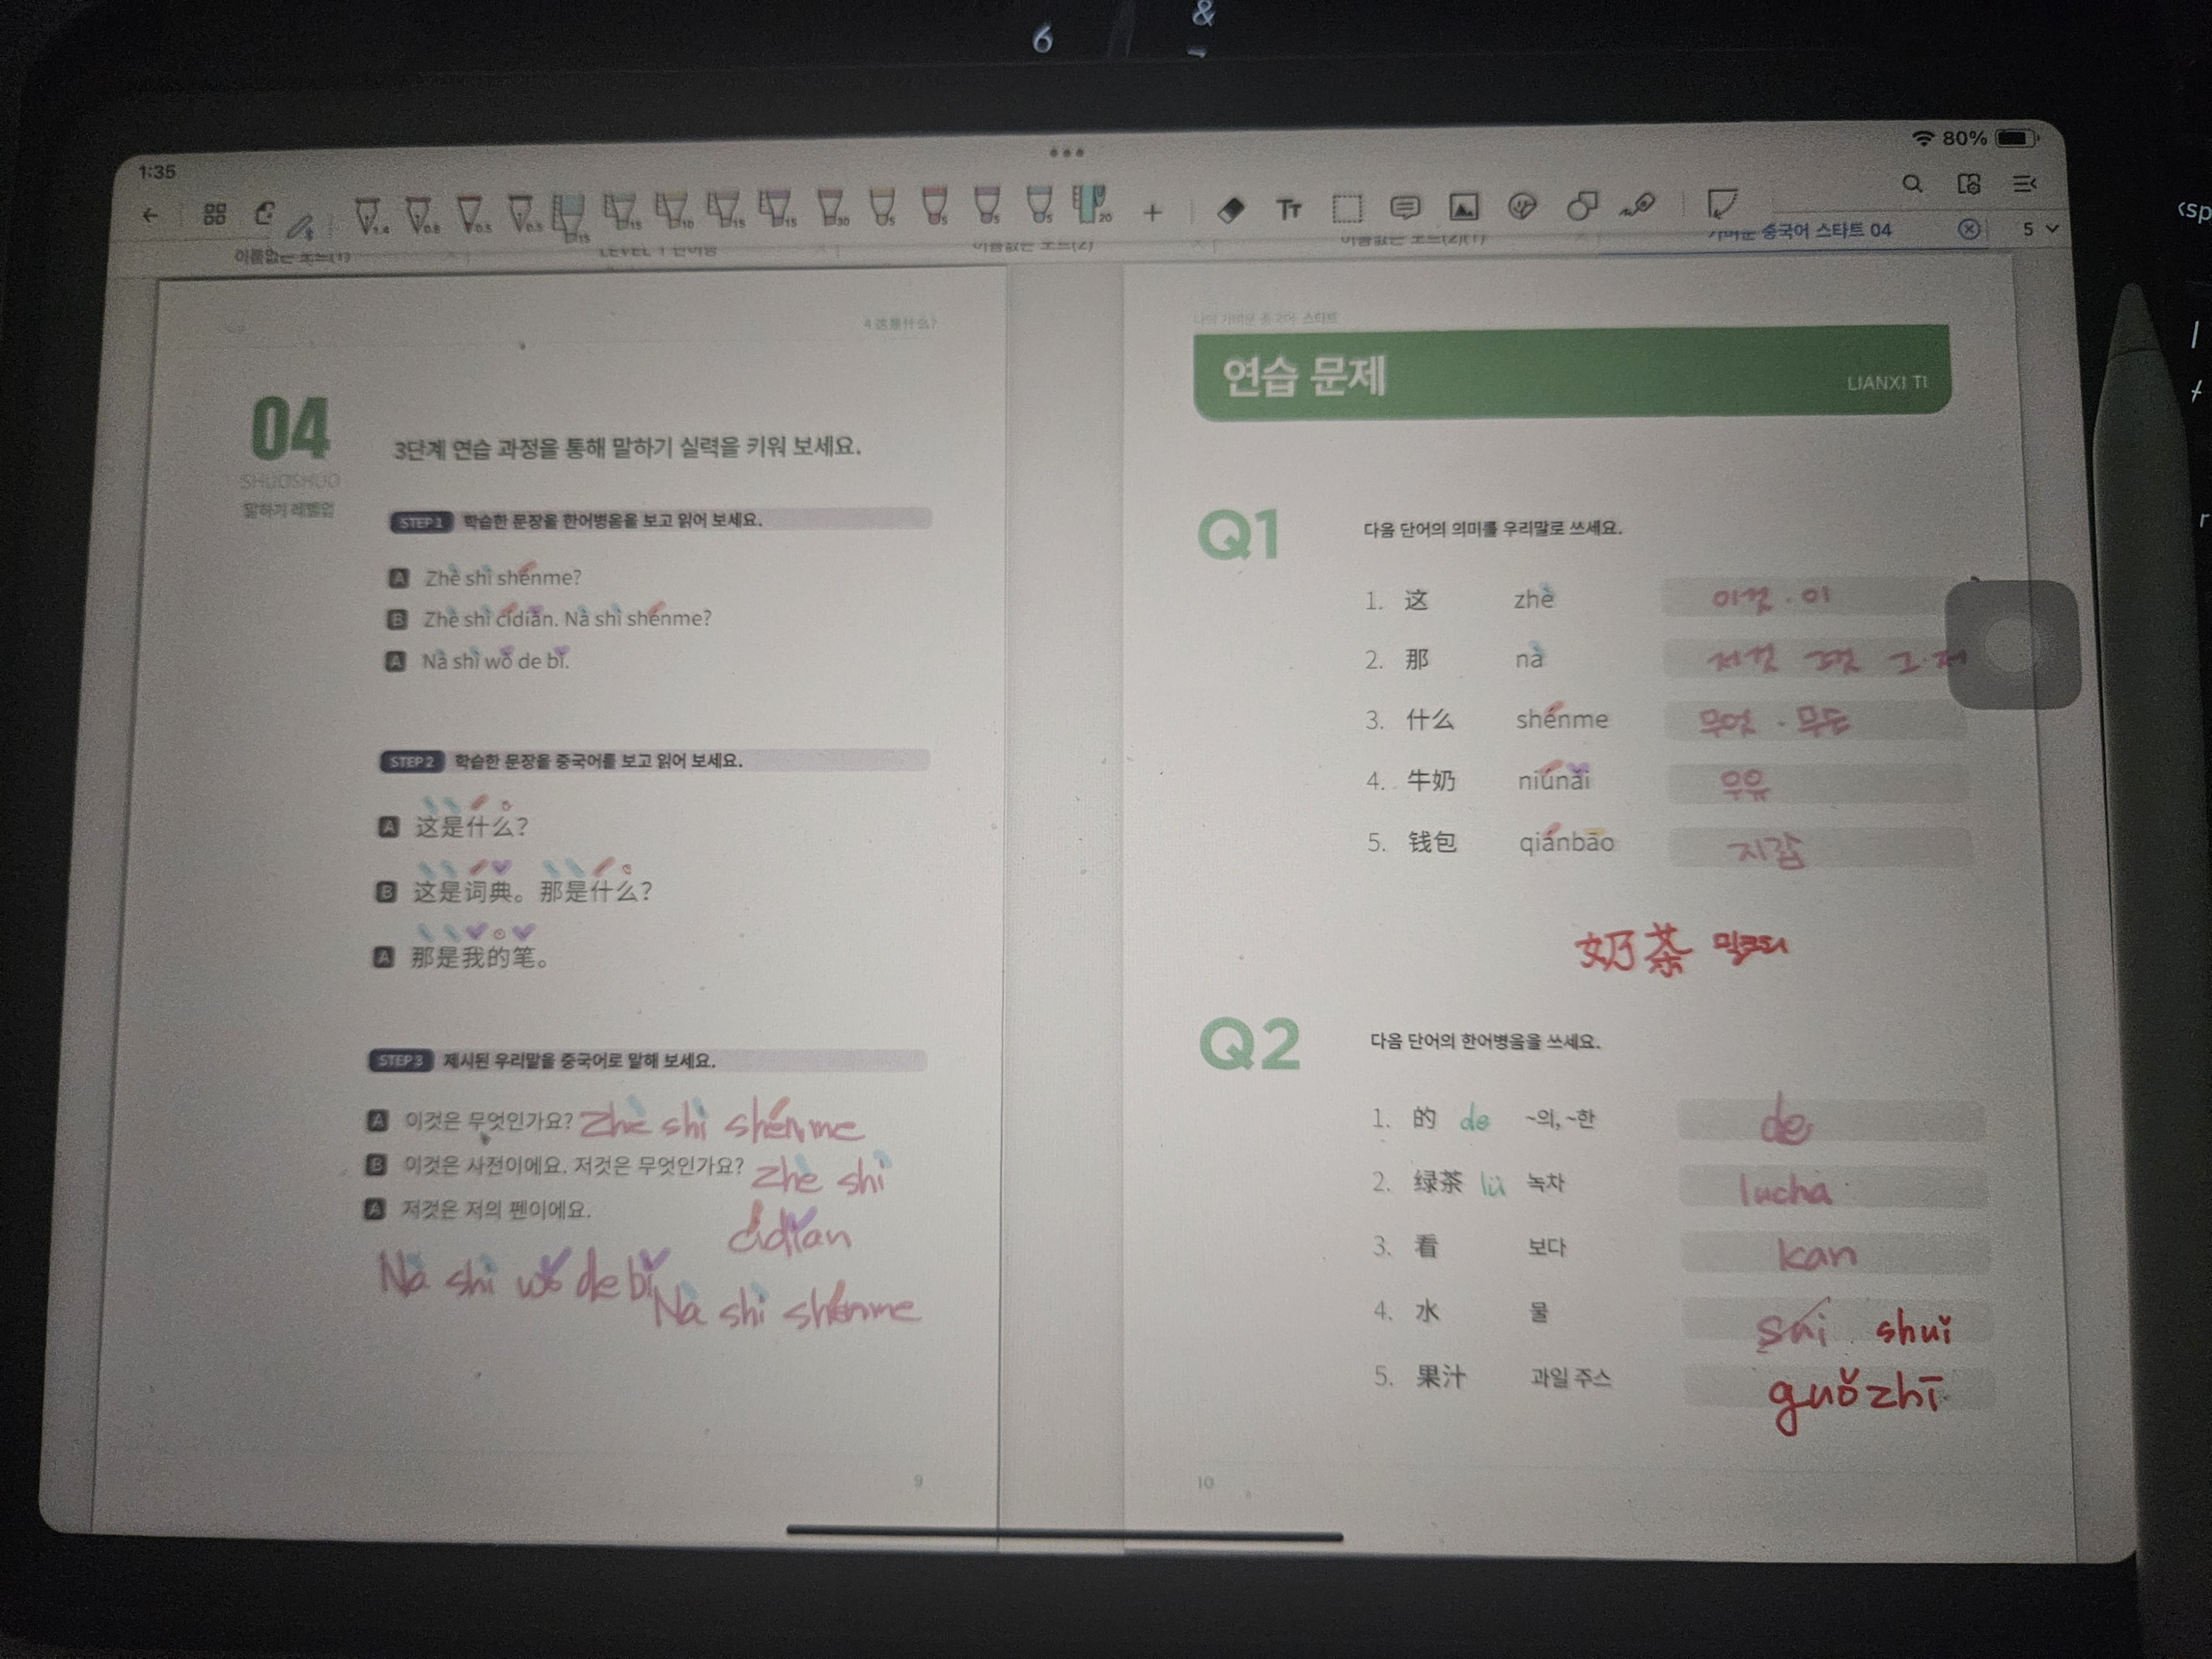 6 &
1:35
80%
1.4 0.8 0.5 0.5 15 15 10 15 15 30 5 5 5 5 20 + Tт
이름없는 노트(1)
LEVEL 1 단어장
이름없는 노트(2)
이름없는 노트(2)(1)
중국어 스타트 04
5
4 这是什么?
04
SHUOSHUO
말하기 레벨업
3단계 연습 과정을 통해 말하기 실력을 키워 보세요.
STEP 1 학습한 문장을 한어병음을 보고 읽어 보세요.
A Zhè shì shénme?
B Zhè shì cídiǎn. Nà shì shénme?
A Nà shì wǒ de bǐ.
STEP 2 학습한 문장을 중국어를 보고 읽어 보세요.
A 这是什么?
B 这是词典。那是什么?
A 那是我的笔。
STEP 3 제시된 우리말을 중국어로 말해 보세요.
A 이것은 무엇인가요? zhè shì shénme
B 이것은 사전이에요. 저것은 무엇인가요? zhè shì
cídiǎn
A 저것은 저의 펜이에요.
Nà shì wǒ de bǐ
Nà shì shénme
9
스타트
연습 문제
LIANXI TI
Q1 다음 단어의 의미를 우리말로 쓰세요.
1. 这 zhè 이것 · 이
2. 那 nà 저것 그것 그·저
3. 什么 shénme 무엇 · 무슨
4. 牛奶 niúnǎi 우유
5. 钱包 qiánbāo 지갑
奶茶 밀크티
Q2 다음 단어의 한어병음을 쓰세요.
1. 的 de ~의, ~한 de
2. 绿茶 lü 녹차 lucha
3. 看 보다 kan
4. 水 물 sui shuǐ
5. 果汁 과일 주스 guǒzhī
10